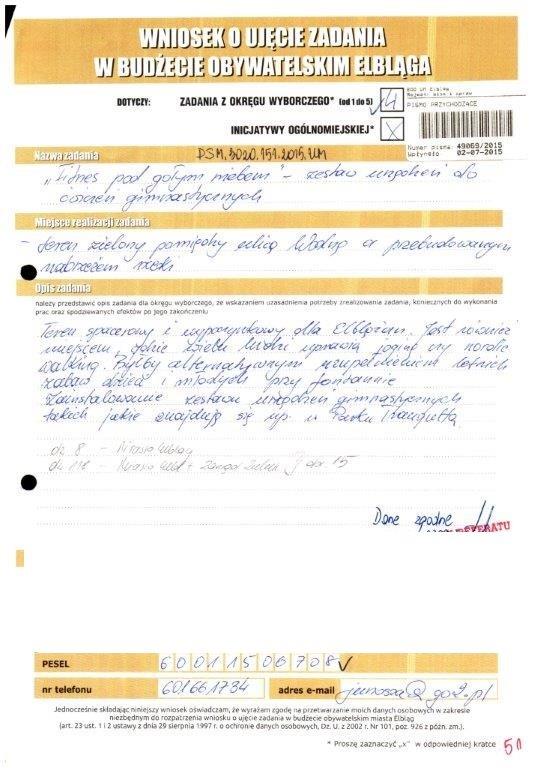 WNIOSEK O UJĘCIE ZADANIA
W BUDŻECIE OBYWATELSKIM ELBLĄGA
DOTYCZY: ZADANIA Z OKRĘGU WYBORCZEGO* (od 1 do 5) 4
PISMO PRZYCHODZĄCE
INICJATYWY OGÓLNOMIEJSKIEJ* X
Numer pisma: 49069/2015
Wpłynęło 02-07-2015
Nazwa zadania DSM.3020.151.2015.UM
"Fitnes pod gołym niebem" - zestaw urządzeń do
ćwiczeń gimnastycznych
Miejsce realizacji zadania
- teren zielony pomiędzy ulicą Wodną a przebudowanym
nabrzeżem rzeki
Opis zadania
należy przedstawić opis zadania dla okręgu wyborczego, ze wskazaniem uzasadnienia potrzeby zrealizowania zadania, koniecznych do wykonania
prac oraz spodziewanych efektów po jego zakończeniu
Teren spacerowy i wypoczynkowy dla Elblążan. Jest również
miejscem, gdzie wielu ludzi uprawia joging czy nordic
walking. Byłby alternatywnym uzupełnieniem letnich
zabaw dzieci i młodych przy fontannie
Zainstalowanie zestawu urządzeń gimnastycznych
takich jakie znajdują się np. w Parku Traugutta.
dz. 8 - Miasto Elbląg
dz. 118 - Miasto Elbl + Zarząd Zieleni } obr 15
Dane zgodne
REFERATU
PESEL 60011506708
nr telefonu 601661734 adres e-mail @go2.pl
Jednocześnie składając niniejszy wniosek oświadczam, że wyrażam zgodę na przetwarzanie moich danych osobowych w zakresie
niezbędnym do rozpatrzenia wniosku o ujęcie zadania w budżecie obywatelskim miasta Elbląg
(art. 23 ust. 1 i 2 ustawy z dnia 29 sierpnia 1997 r. o ochronie danych osobowych, Dz. U. z 2002 r. Nr 101, poz. 926 z późn. zm.).
* Proszę zaznaczyć „x" w odpowiedniej kratce 50